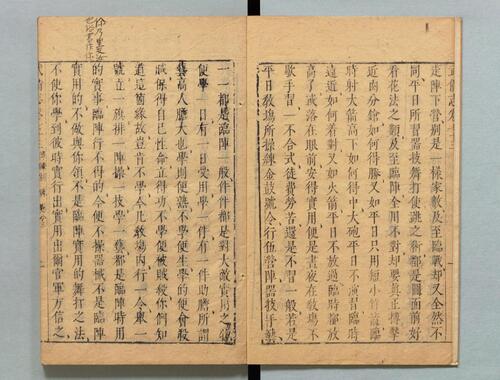 走陣下營別是一樣家數及至臨戰却又全然不
同平日所習器技舞打使跳之術都是圖面前好
看花法之類及至臨陣全用不對却要真正搏擊
近肉分鎗如何得勝又如平日只用短小竹箭臨
時射大箭高下如何得中大砲平日不演習臨時
遠近如何若對又如火箭平日不放過臨時都放
高了或落在眼前安得實用便是晝夜在教場不
歇手習一不合式徒費勞苦還是不習一般若是
平日教場所操練金鼓號令行伍營陣器技手藝
一一都是臨陣一般件件都是對大敵實用之
便學一日有一日受用學一件有一件助膽所謂
藝高人膽大也學則便熟不學便生學的便會殺
賊保得自己性命立得功不學便被賊殺你們知
道這箇緣故豈肯不學今凡教場內行一令舉一
號立一旗排一陣操一技學一藝都是臨陣時用
的實事臨陣行不得的今便不操器械不是臨陣
實用的不做與你領不是實用的舞打之法
不使你學到彼時實行出實用出爾官軍方信之